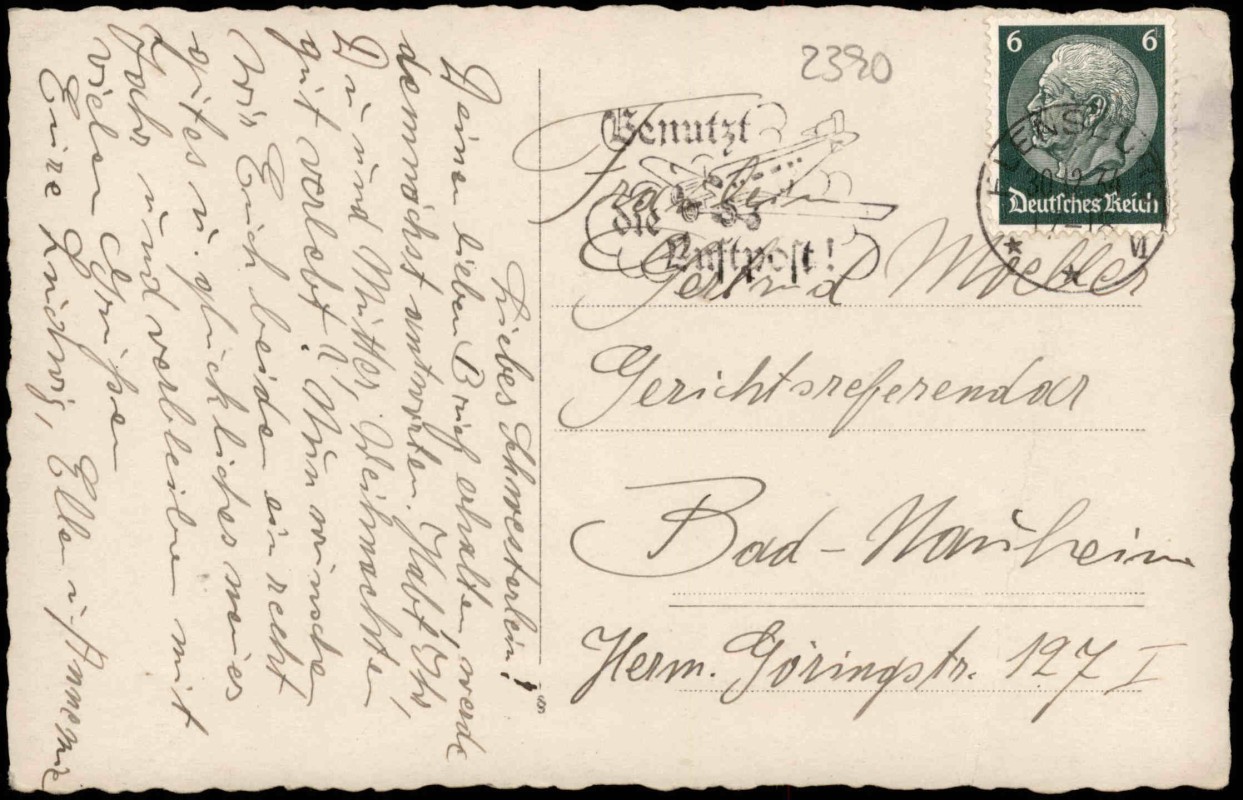 Liebes Schwesterlein!
Deinen lieben Brief erhalten, werde
demnächst antworten. Habt Ihr,
Du und Mutter, Weihnachten
gut verlebt? Nun wünsche
wir Euch beiden ein recht
gutes u. glückliches neues
Jahr und verbleiben mit
vielen Grüßen
Eure Ludwig, Ella u. Annemie
2390
6 6
Deutsches Reich
30.12.
VI
Benutzt
die
Luftpost!
Fräulein
Gertrud Moeller
Gerichtsreferendar
Bad-Nauheim
Herm. Göringstr. 127 I